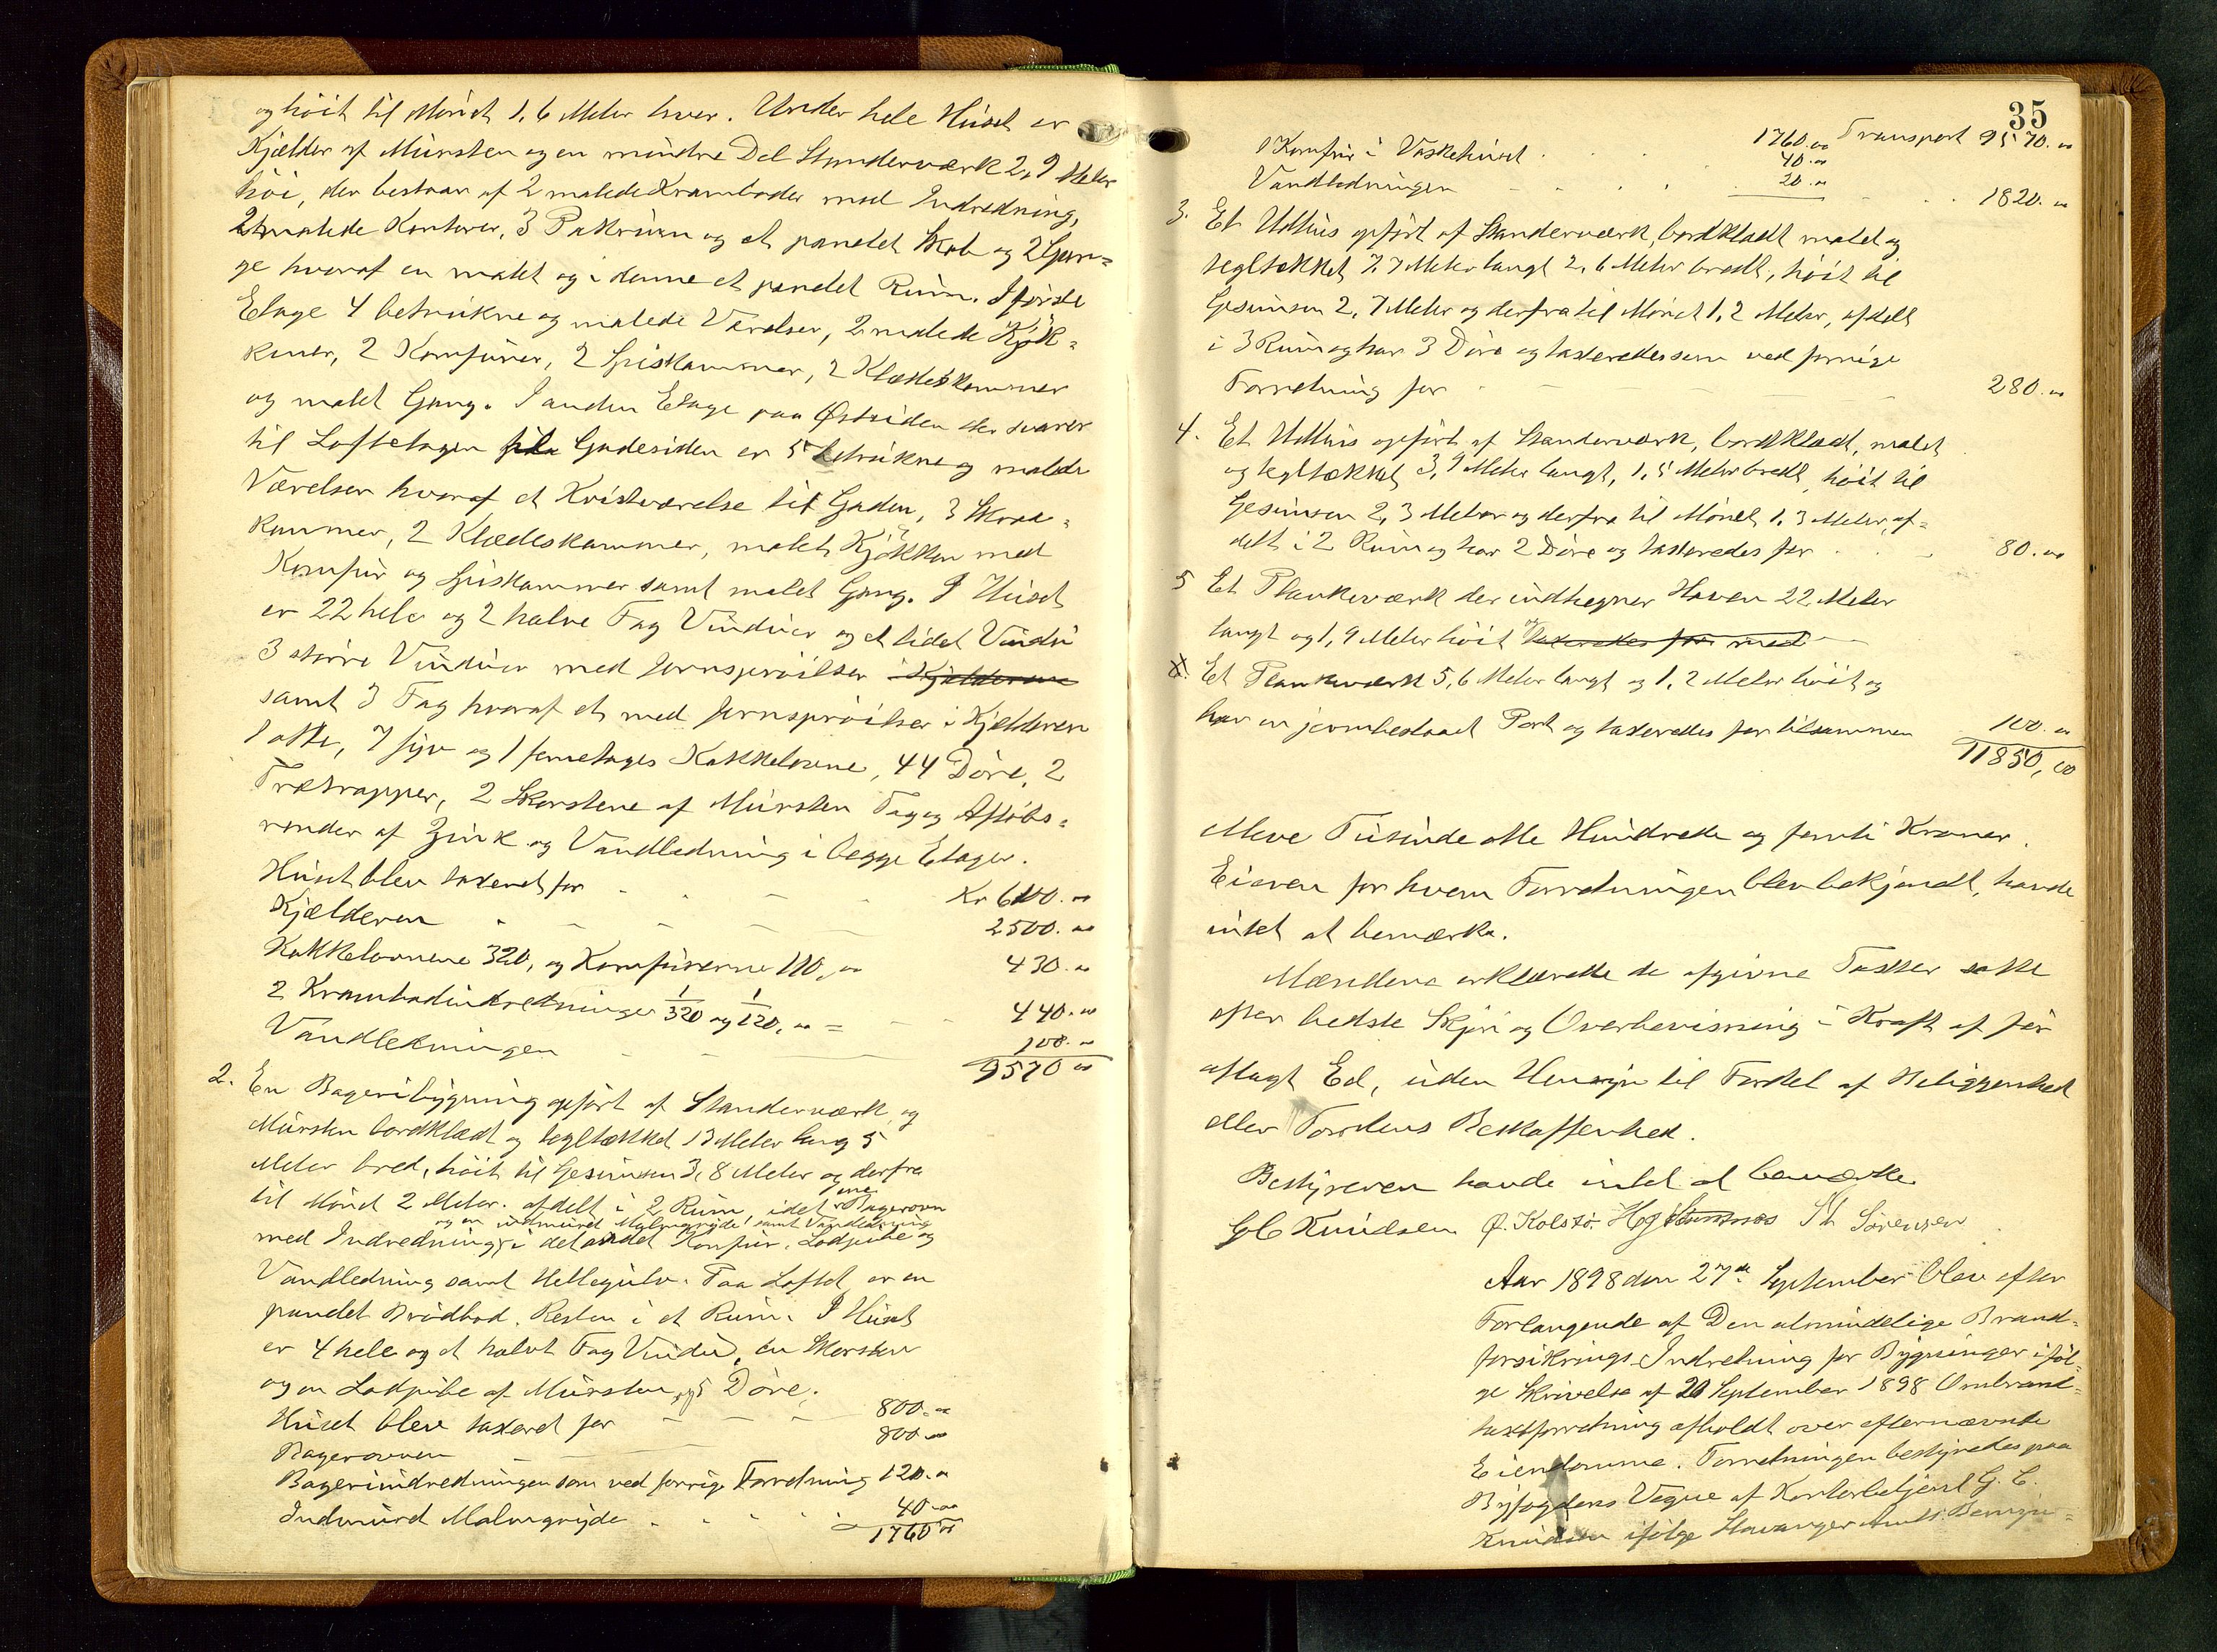 og höit til Mönet 1,6 Meter hver. Under hele Huset er
Kjælder af Mursten og en mindre Del Stænderværk 2,9 Meter
höi, der bestaar af 2 malede Kramboder med Indredning,
2 malede Kontorer, 3 Pakrum og et panelet Skab og 2 Gan-
ge hvoraf en malet og i denne et panelet Rum. I förste
Etage 4 betrukne og malede Værelser, 2 malede Kjök-
kener, 2 Komfurer, 2 Spiskammer, 2 Klædeskammer
og malet Gang. I anden Etage paa Østsiden der svarer
til Loftetagen til Gadesiden er 5 betrukne og malede
Værelser hvoraf et Kvistværelse til Gaden, 3 Skraa-
kammer, 2 Klædeskammer, malet Kjökken med
Komfur og Spiskammer samt malet Gang. I Huset
er 22 hele og 2 halve Fag Vinduer og et lidet Vindu
3 större Vinduer med Jernsprölser i Kjælderen
samt 3 Fag hvoraf et med Jernsprölser i Kjælderen
1 otte, 7 syv og 1 femetages Kakkelovne, 44 Döre, 2
Trætrapper, 2 Skorstene af Mursten Tag og Aflöbs-
render af Zink og Vandledning i begge Etager.
Huset blev taxeret for Kr 6100.00
Kjælderen 2500.00
Kakkelovnene 320, og Komfurerne 110,00 430.00
2 Krambodindredninger 1/320 og 1/120,00 = 440.00
Vandledningen 100.00
9570 00
2. En Bageribygning opfört af Stænderværk og
Mursten bordklædt og tegltækket 13 Meter lang 5
Meter bred, höit til Gesimsen 3,8 Meter og derfra
til Mönet 2 Meter. afdelt i 2 Rum, i det ene Bagerovn
og en indmuret Malmgryde samt Vandledning
med Indredning, i det andet Komfur, Lodpibe og
Vandledning samt Hellegulv. Paa Loftet er en
panelet Brödbod, Resten i et Rum. I Huset
er 4 hele og et halvt Fag Vindu, en Skorsten
og en Lodpibe af Mursten, og 5 Döre.
Huset blev taxeret for 800.00
Bagerovnen 800.00
Bageriindredningen som ved forrige Forretning 120.00
Indmuret Malmgryde 40.00
1760 00
35
1760.00 Transport 9570.00
1 Komfur i Vaskehuset 40.00
Vandledningen 20.00
1820.00
3. Et Udhus opfört af Stænderværk, bordklædt malet og
tegltækket 7,7 Meter langt 2,6 Meter bredt, höit til
Gesimsen 2,7 Meter og derfra til Mönet 1,2 Meter, afdelt
i 3 Rum og har 3 Döre og taxeredes som ved forrige
Forretning for 280.00
4. Et Udhus opfört af Stænderværk, bordklædt, malet
og tegltækket 3,9 Meter langt, 1,5 Meter bredt, höit til
Gesimsen 2,3 Meter og derfra til Mönet 1,3 Meter, af-
delt i 2 Rum og har 2 Döre og taxeredes for 80.00
5 Et Plankeværk der indhegner Haven 22 Meter
langt og 1,9 Meter höit og taxeredes for med
Et Plankeværk 5,6 Meter langt og 1,2 Meter höit og
har en jernbeslaaet Port og taxeredes for tilsammen 100.00
11850,00
Elleve Tusinde otte Hundrede og femti Kroner.
Eieren for hvem Forretningen blev bekjendt, havde
intet at bemærke.
Mændene erklærede de afgivne Taxter satte
efter bedste Skjön og Overbevisning i Kraft af för
aflagt Ed, uden Hensyn til Fordel af Beliggenhed
eller Jordens Beskaffenhed.
Bestyreren havde intet at bemærke
G C Knudsen Ø. Kolstö S Sörensen
Aar 1898 den 27de September blev efter
Forlangende af Den almindelige Brand-
forsikrings-Indretning for Bygninger iföl-
ge Skrivelse af 20 September 1898 Ombrand-
taxtforretning afholdt over efternævnte
Eiendomme. Forretningen bestyredes paa
Byfogdens Vegne af Kontorbetjent G. C.
Knudsen ifölge Stavanger Amts Bemyn-